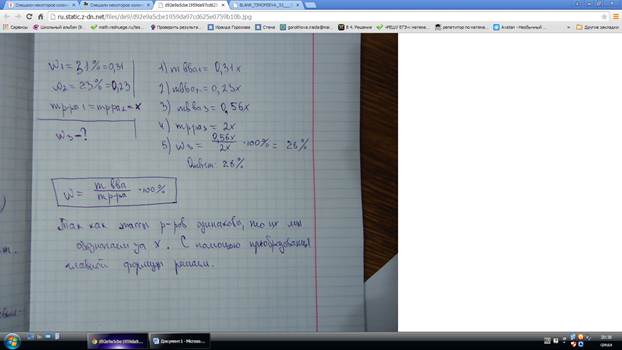 Смешали некоторое колич
Смешали некоторое колич
d92e9a5cbe1959da97cd625e0759b10b.jpg
BLANK_TIMOFEEVA_
ru.static.z-dn.net/files/de9/d92e9a5cbe1959da97cd625e0759b10b.jpg
Сервисы
Школьный альбом
math.reshuege.ru/test
Проверить результа
Ираида Горохова
Входящие
gorokhova.iraida@mai
В 4. Решение
«РЕШУ ЕГЭ»: матема
репетитор по матема
Avatan - Необычный ф
Другие закладки
W1 = 31% = 0,31
W2 = 23% = 0,23
mр-ра1 = mр-ра2 = x
W3 - ?
1) m в-ва1 = 0,31x
2) m в-ва2 = 0,23x
3) m в-ва3 = 0,56x
4) m р-ра3 = 2x
5) W3 = 0,56x / 2x · 100% = 28%
Ответ: 28%
W = m в-ва / m р-ра · 100%
Так как массы р-ров одинаковы, то их мы
обозначаем за x. С помощью преобразования
главной формулы решаем.
d92e9a5cbe1959da97c
Документ1 - Micros...
20:38
среда